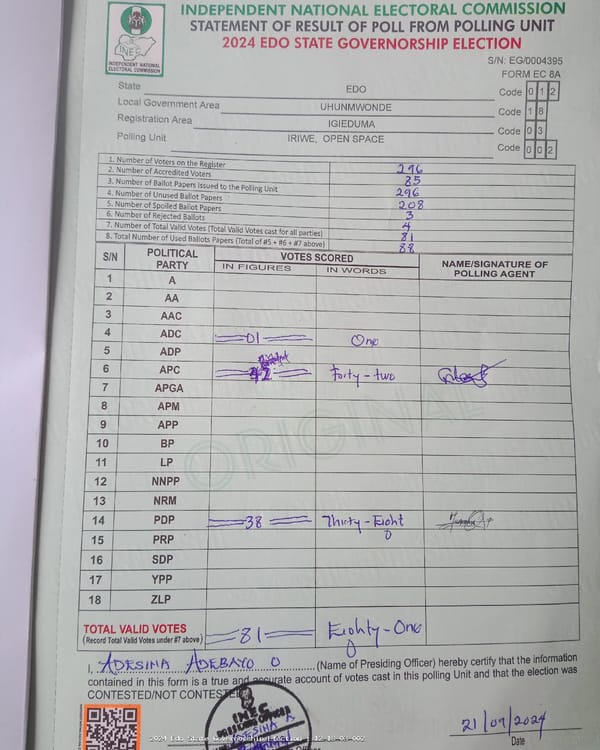 INDEPENDENT NATIONAL ELECTORAL COMMISSION
STATEMENT OF RESULT OF POLL FROM POLLING UNIT
2024 EDO STATE GOVERNORSHIP ELECTION
INEC
INDEPENDENT NATIONAL
ELECTORAL COMMISSION
S/N: EG/0004395
FORM EC 8A
State EDO Code 0 1 2
Local Government Area UHUNMWONDE Code 1 8
Registration Area IGIEDUMA Code 0 3
Polling Unit IRIWE, OPEN SPACE Code 0 0 2
1. Number of Voters on the Register 296
2. Number of Accredited Voters 85
3. Number of Ballot Papers Issued to the Polling Unit 296
4. Number of Unused Ballot Papers 208
5. Number of Spoiled Ballot Papers 3
6. Number of Rejected Ballots 4
7. Number of Total Valid Votes (Total Valid Votes cast for all parties) 81
8. Total Number of Used Ballots Papers (Total of #5 + #6 + #7 above) 88
S/N POLITICAL PARTY VOTES SCORED NAME/SIGNATURE OF POLLING AGENT
IN FIGURES IN WORDS
1 A
2 AA
3 AAC
4 ADC 01 One
5 ADP
6 APC 42 Forty-two
7 APGA
8 APM
9 APP
10 BP
11 LP
12 NNPP
13 NRM
14 PDP 38 Thirty-Eight
15 PRP
16 SDP
17 YPP
18 ZLP
ORIGINAL
TOTAL VALID VOTES 81 Eighty-One
(Record Total Valid Votes under #7 above)
I, ADESINA ADEBAYO O (Name of Presiding Officer) hereby certify that the information
contained in this form is a true and accurate account of votes cast in this polling Unit and that the election was
CONTESTED/NOT CONTESTED
INEC
21/09/2024
Date